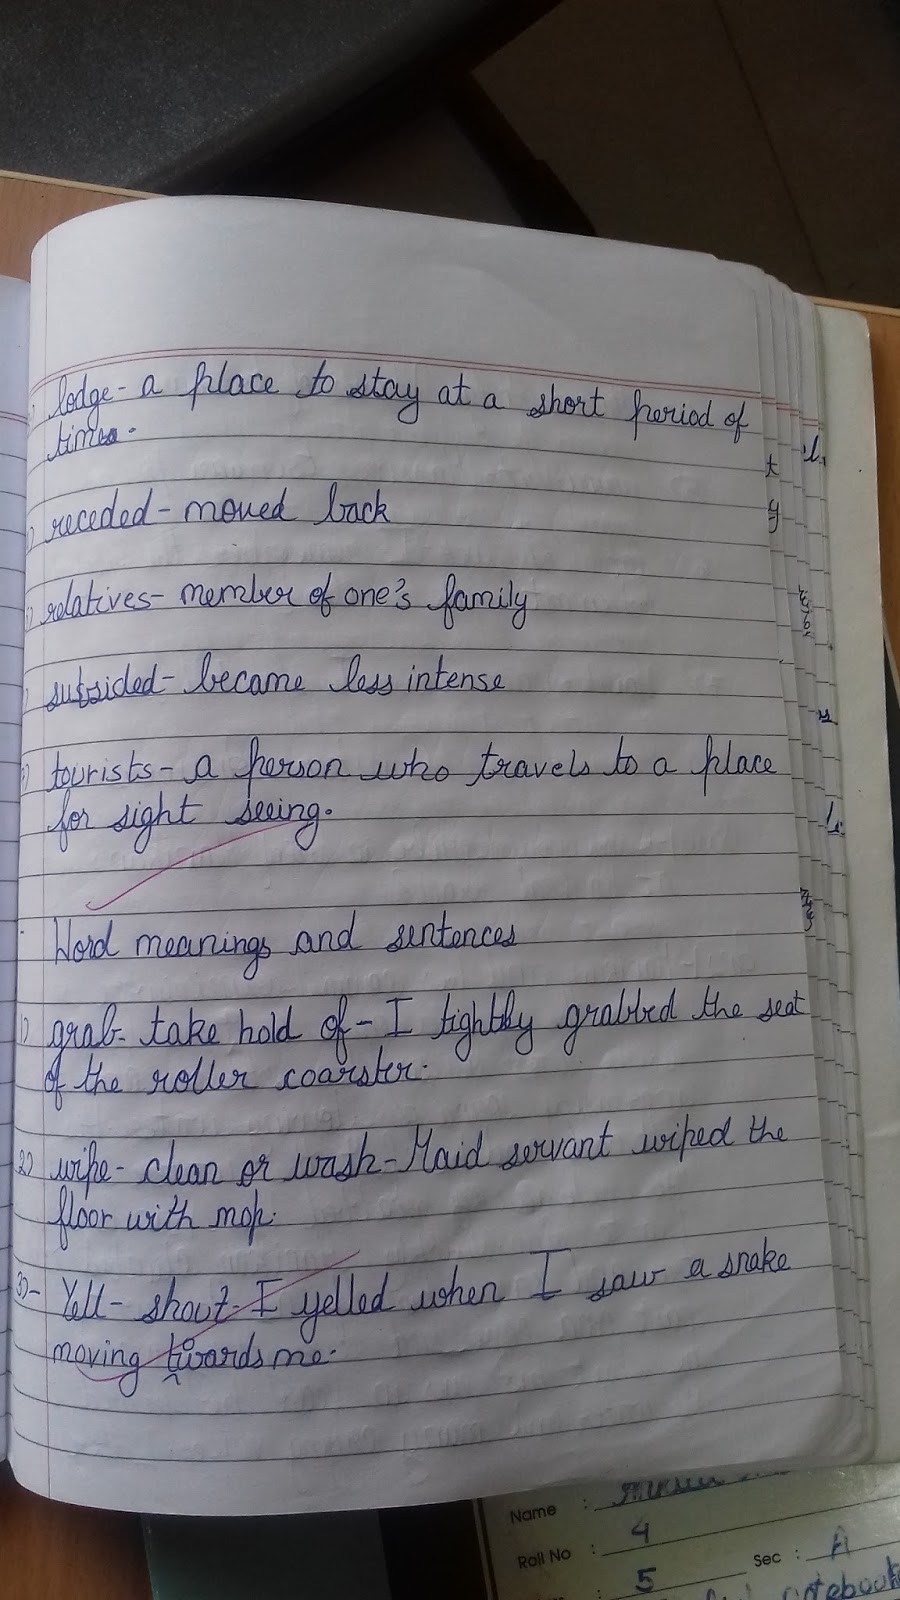 lodge- a place to stay at a short period of
time.
receded- moved back
relatives- member of one's family
subsided- became less intense
tourists- a person who travels to a place
for sight seeing.
Word meanings and sentences
1) grab- take hold of- I tightly grabbed the seat
of the roller coarster.
2) wipe- clean or wash- Maid servant wiped the
floor with mop.
3)- Yell- shout- I yelled when I saw a snake
moving towards me.
Name :
Roll No : 4
: 5 Sec : A
notebook